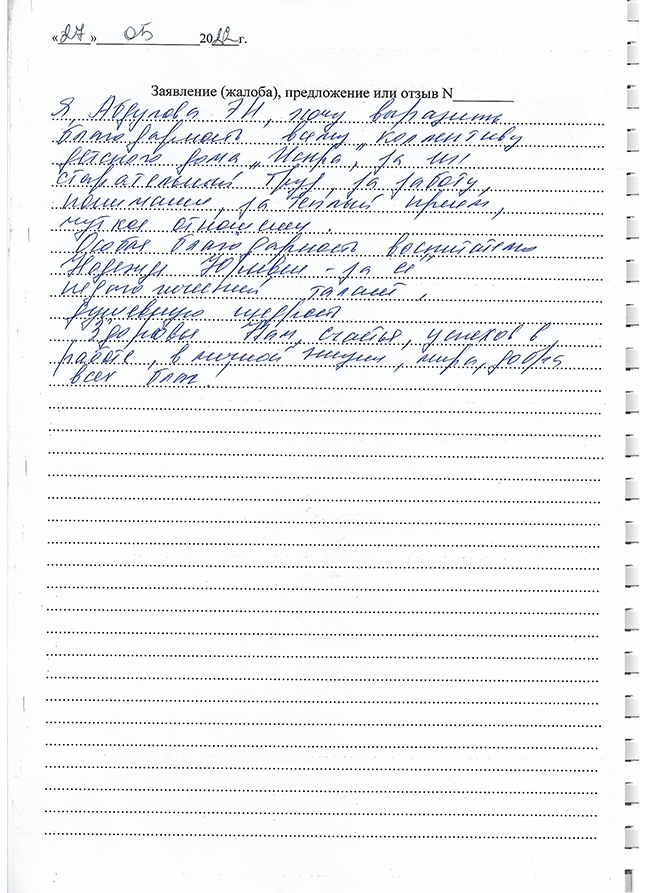 «27» 05 2022г.
Заявление (жалоба), предложение или отзыв N
Я, Абдулова Э И, хочу выразить
благодарность всему коллективу
детского дома „Искра", за их
старательный труд, за работу,
понимание, за теплый прием,
чуткое отношение.
Особая благодарность воспитателю
Надежде Юрьевне - за её
педагогический талант,
душевную щедрость
Здоровья Вам, счастья, успехов в
работе, в личной жизни, мира, добра
всех благ